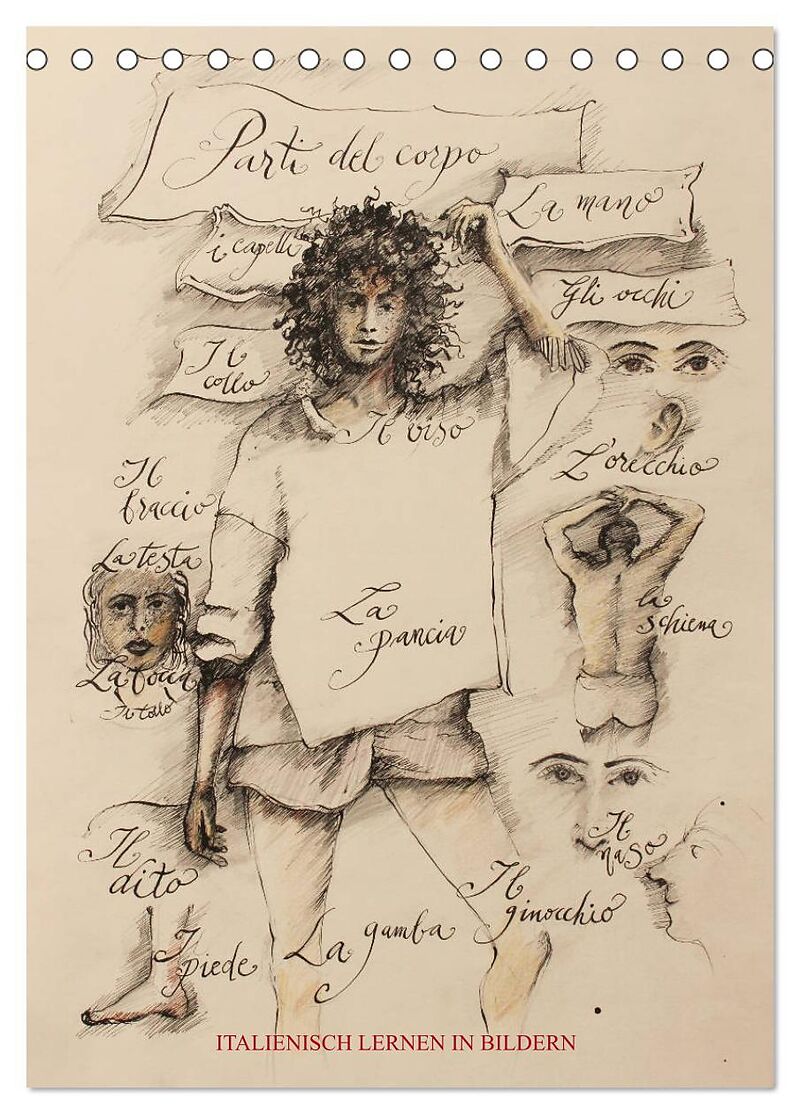 Parti del corpo
La mano
i capelli
Gli occhi
Il
collo
Il viso
L'orecchio
Il
braccio
La testa
La
pancia
la
schiena
La bocca
Il collo
Il
naso
Il
dito
Il
ginocchio
La gamba
I
piede
ITALIENISCH LERNEN IN BILDERN